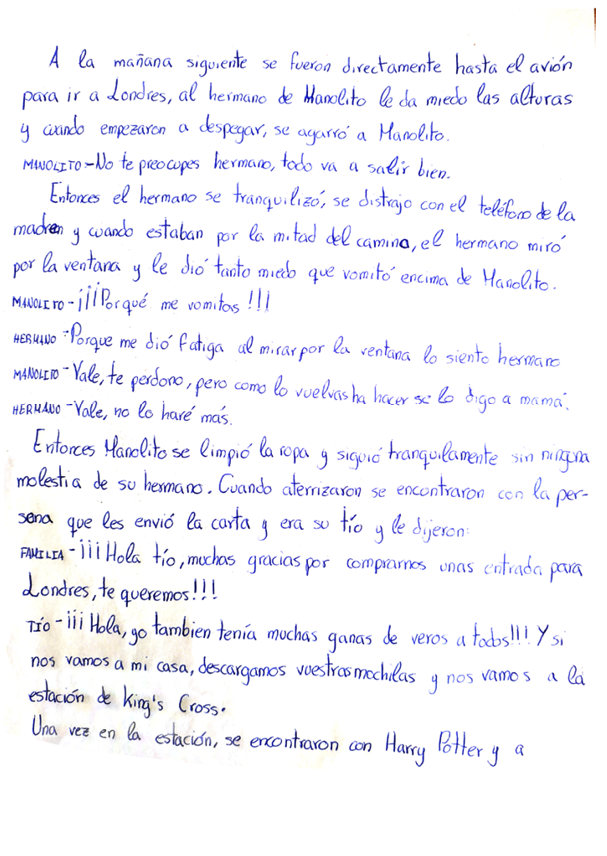 A la mañana siguiente se fueron directamente hasta el avión
para ir a Londres, al hermano de Manolito le da miedo las alturas
y cuando empezaron a despegar, se agarró a Manolito.
MANOLITO-No te preocupes hermano, todo va a salir bien.
Entonces el hermano se tranquilizó, se distrajo con el teléfono de la
madren y cuando estaban por la mitad del camino, el hermano miró
por la ventana y le dió tanto miedo que vomitó encima de Manolito.
MANOLITO-¡¡¡Porqué me vomitos!!!
HERMANO-Porque me dió fatiga al mirar por la ventana lo siento hermano
MANOLITO-Vale, te perdono, pero como lo vuelvas ha hacer se lo digo a mamá.
HERMANO-Vale, no lo haré más.
Entonces Manolito se limpió la ropa y siguió tranquilamente sin ninguna
molestia de su hermano. Cuando aterrizaron se encontraron con la per-
sona que les envió la carta y era su tío y le dijeron:
FAMILIA-¡¡¡Hola tío, muchas gracias por comprarnos unas entrada para
Londres, te queremos!!!
TÍO-¡¡¡Hola, yo tambien tenía muchas ganas de veros a todos!!! Y si
nos vamos a mi casa, descargamos vuestras mochilas y nos vamos a la
estación de King's Cross.
Una vez en la estación, se encontraron con Harry Potter y a